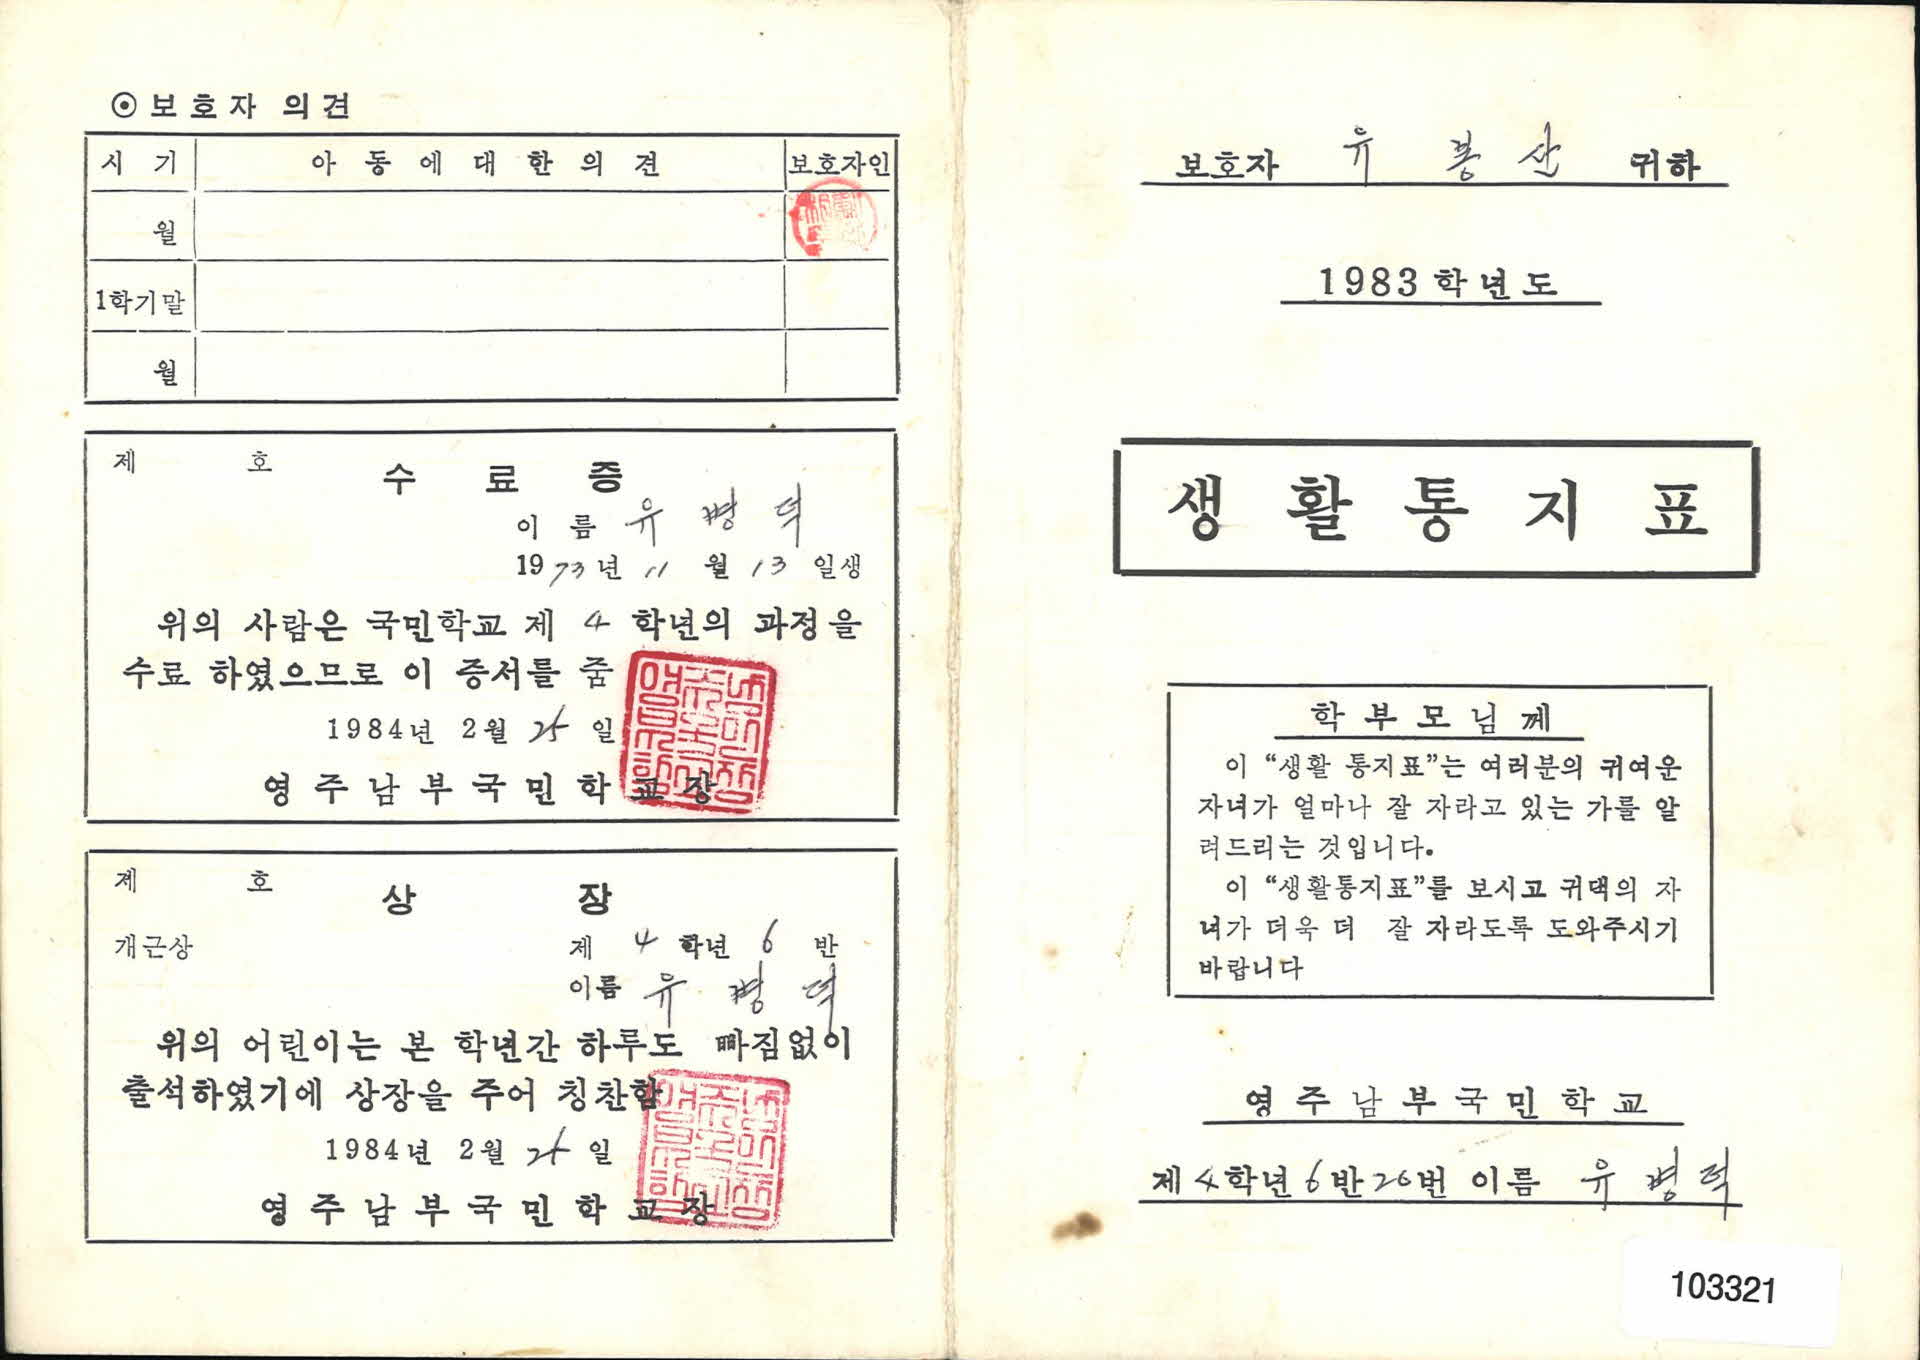 ⊙보호자 의견
시 기 아동에대한의견 보호자인
월
1학기말
월
제 호 수 료 증
이 름 유병덕
1973년 11월 13일생
위의 사람은 국민학교 제 4 학년의 과정을
수료 하였으므로 이 증서를 줌
1984년 2월 25일
영주남부국민학교장
제 호 상 장
개근상 제 4 학년 6 반
이름 유병덕
위의 어린이는 본 학년간 하루도 빠짐없이
출석하였기에 상장을 주어 칭찬함
1984년 2월 25일
영주남부국민학교장
보호자 유봉산 귀하
1983학년도
생활통지표
학부모님께
이 “생활 통지표”는 여러분의 귀여운
자녀가 얼마나 잘 자라고 있는 가를 알
려드리는 것입니다.
이 “생활통지표”를 보시고 귀댁의 자
녀가 더욱 더 잘 자라도록 도와주시기
바랍니다
영주남부국민학교
제4학년6반26번 이름 유병덕
103321